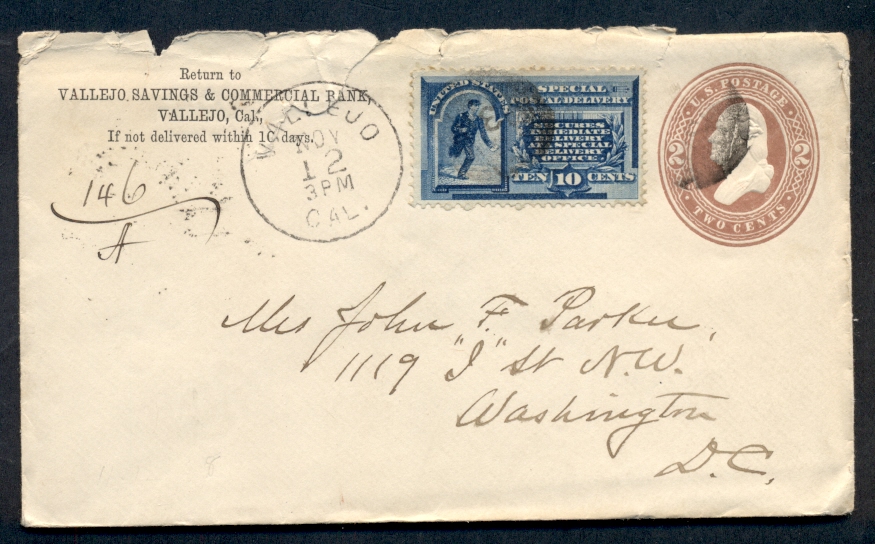 Return to
VALLEJO SAVINGS & COMMERCIAL BANK,
VALLEJO, Cal.,
If not delivered within 10 days.
146
A
VALLEJO
NOV
12
3 PM
CAL.
UNITED STATES
SPECIAL
POSTAL DELIVERY
SECURES
IMMEDIATE
DELIVERY
AT A SPECIAL
DELIVERY
OFFICE
TEN 10 CENTS
U.S. POSTAGE
2 2
TWO CENTS
Mrs John F. Parker,
1119 "I" St N.W.
Washington
D.C.